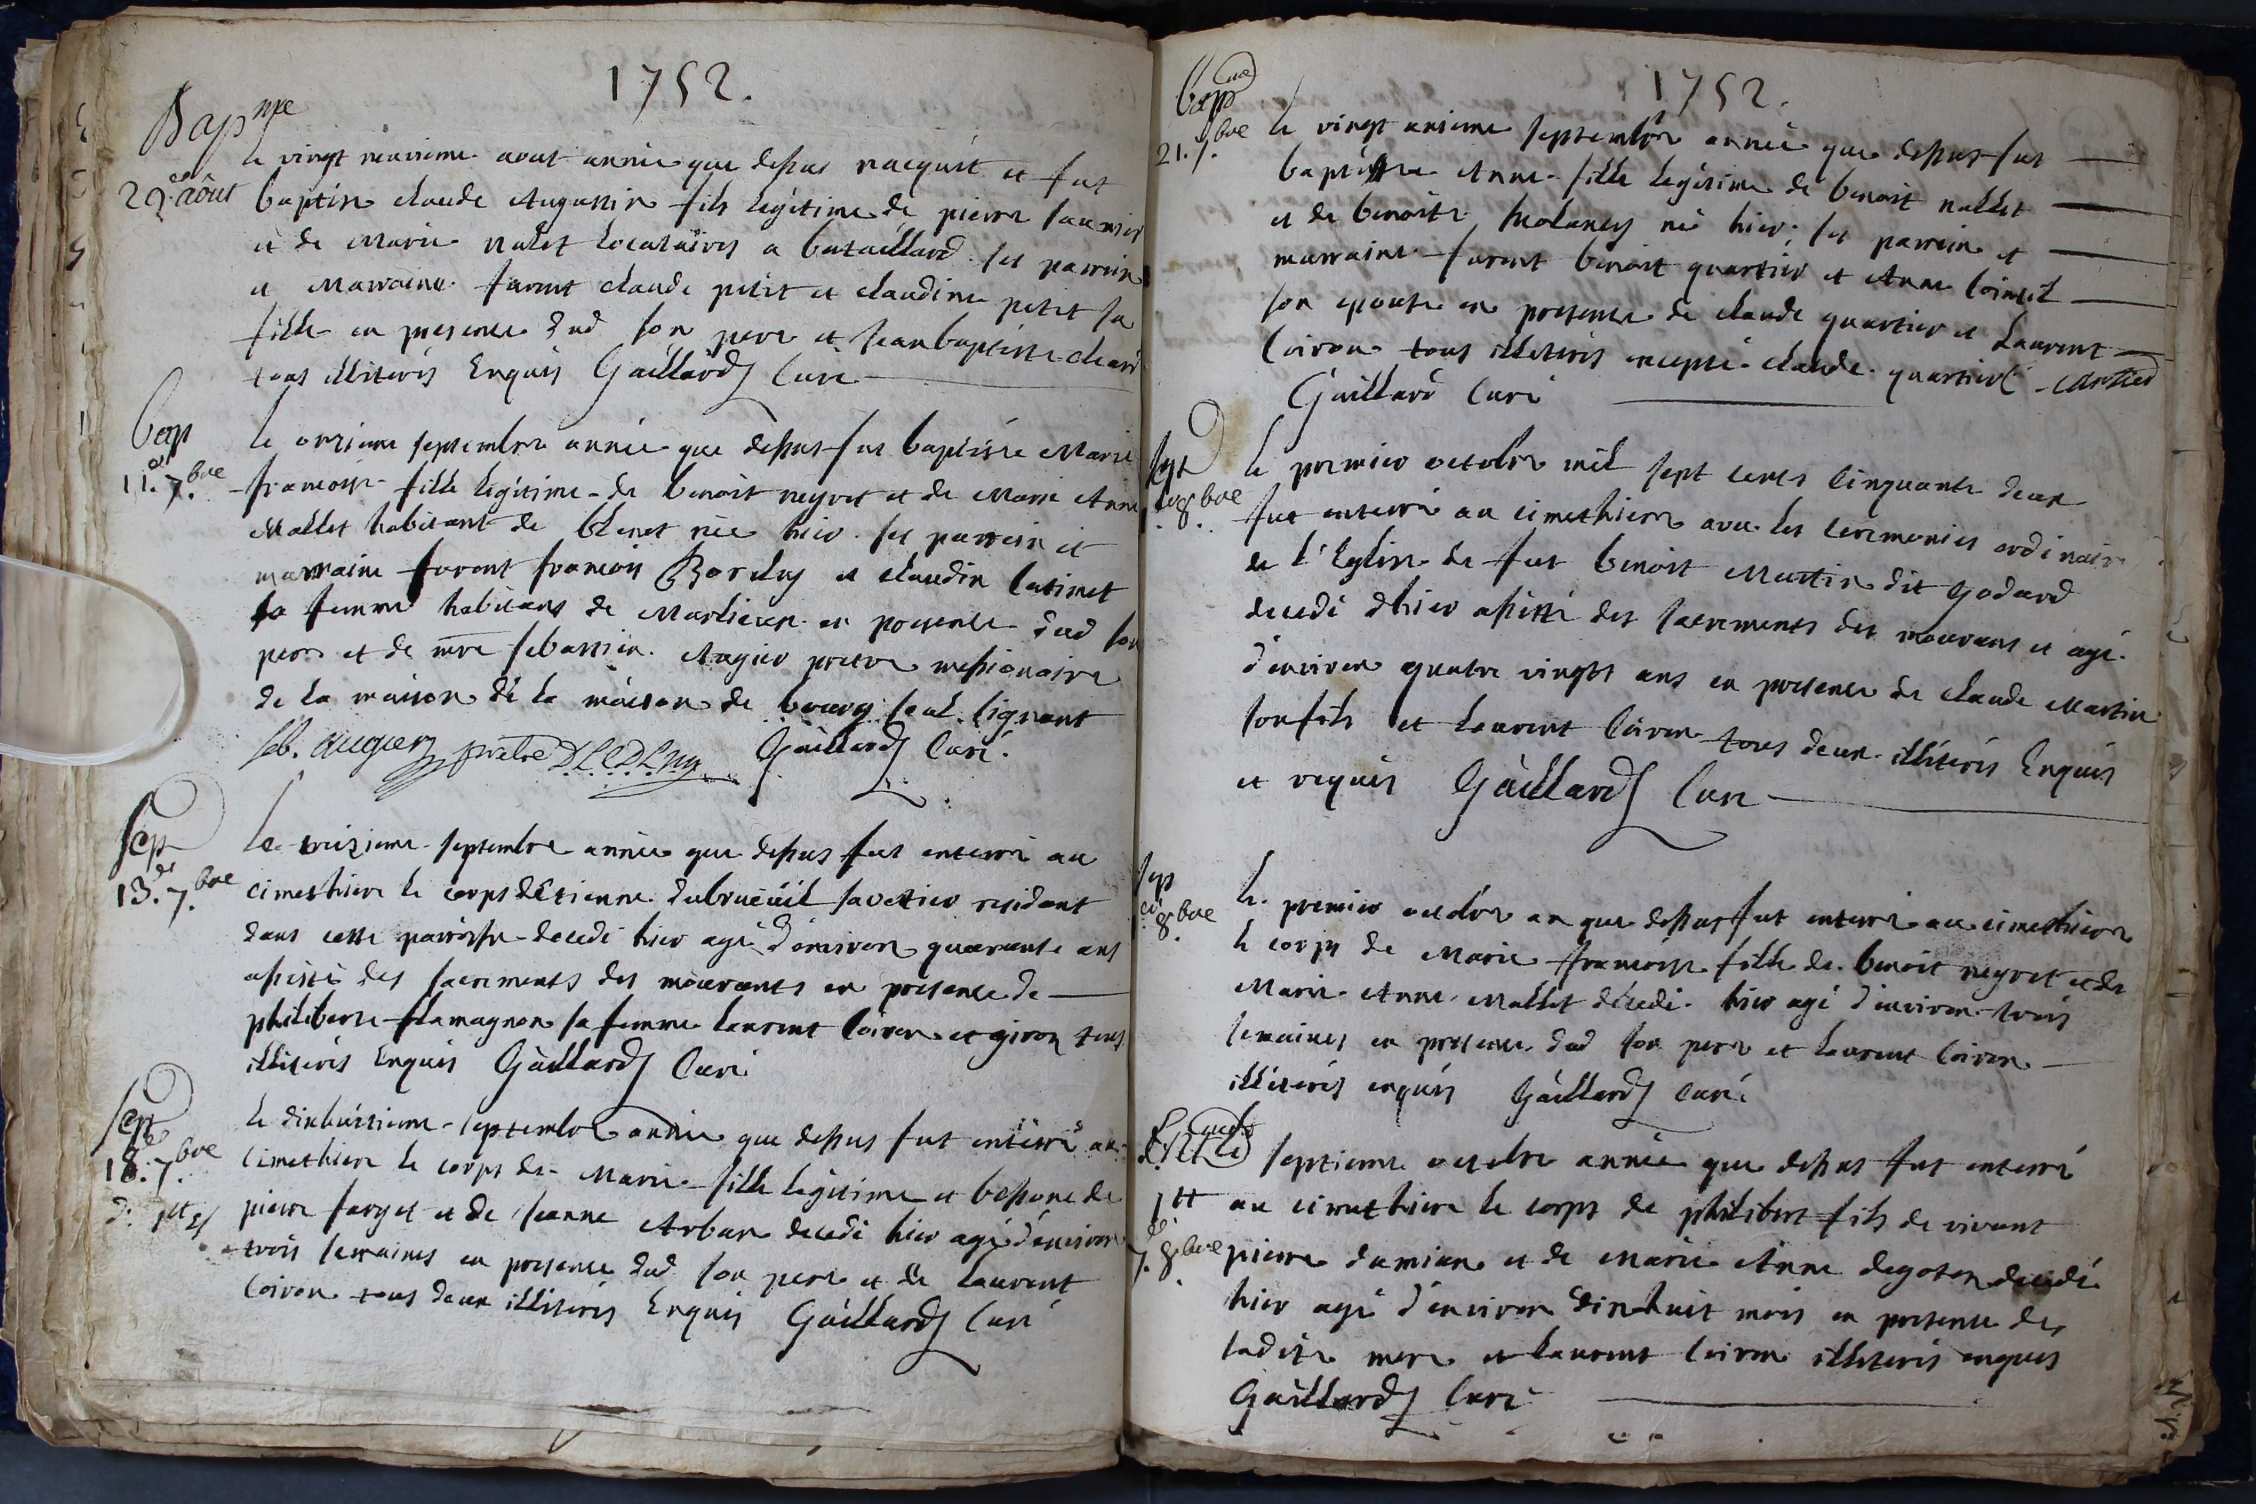 1752.
Bapme
29. août
le vingt neuvieme aout année que dessus nacquit et fut
baptise claude Augustin fils légitime de pierre saunier
et de Marie nalet locataires a bataillard. ses parrein
et Marraine furent claude petit et claudine petit sa
fille en presence dud son pere et Jean baptiste
tous illiterés Enquis Gaillard Curé
bap
11. 7.bre
le onzieme septembre année que dessus fut baptisée Marie
francoise fille legitime de benoit neyret et de Marie Anne
Mallet habitant de née hier. ses parrein et
marraine furent francois et claudin
sa femme habitans de Marlieux en presence dud son
pere et de mre sebastien. Augier pretre missionaire
de la maison de la maison de bourg seul signant
seb. augier prêtre Gaillard Curé.
sep
13. 7.bre
Le treizieme septembre année que dessus fut enterré au
cimethiere le corps d'Etienne dubrueüil savetier residant
dans cette parroisse decedé hier agé d'environ quarante ans
assisté des sacrements des mourants en presence de
philiberte flamagnon sa femme laurent Coiron et giron tous
illiterés Enquis Gaillard Curé
sep
18. 7.bre
le dixhuitieme septembre année que dessus fut enterré au
Cimethiere le corps de Marie fille legitime et bessone de
pierre farget et de Jeanne Arban decedé hier agé d'environ
trois semaines en presence dud son pere et de laurent
Coiron tous deux illiterés Enquis Gaillard Curé
1752.
bapme
21. 7.bre
le vingt unieme septembre année que dessus fut
baptisée Anne fille legitime de benoit nallet
et de benoite Molancy né hier. ses parrein et
marraine furent benoit quartier et Anne
son epouse en presence de claude quartier et Laurent
Coiron tous illiterés excepté claude quartier C cartier
Gaillard Curé
sep
8.bre
le premier octobre mil sept cents Cinquante deux
fut enterré au cimethiere avec les ceremonies ordinaire
de l'Eglise de fut benoit Martin dit godard
decedé d'hier assisté des sacrements des mourans et agé
d'environ quatre vingts ans en presence de claude Martin
son fils et Laurent Coiron tous deux illiterés Enquis
et requis Gaillard Curé
sep
8.bre
le premier octobre an que dessus fut enterré au cimethiere
le corps de Marie francoise fille de benoit neyret et de
Marie Anne Mallet décedé hier agé d'environ trois
semaines en presence dud son pere et Laurent Coiron
illiterés enquis Gaillard Curé
7. 8.bre
Le septieme octobre année que dessus fut enterré
au cimethiere le corps de philibert fils de vivant
pierre damian et de Marie Anne degoten decedé
hier agé d'environ dixhuit mois en presence de
ladite mere et Laurent Coiron illiterés enquis
Gaillard Curé